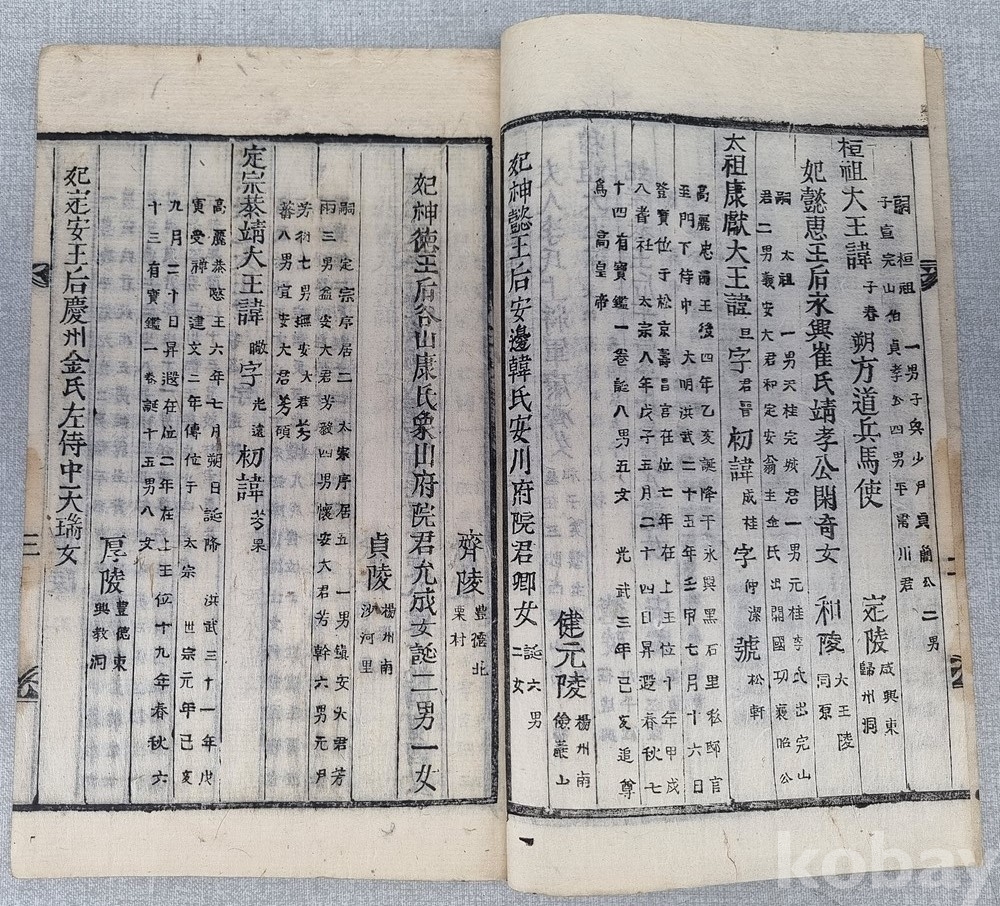 嗣 桓祖 一男子興少尹貞簡公二男
子宣完山伯貞孝公四男平當川君
桓祖大王諱子春朔方道兵馬使 定陵 咸興東
歸州洞
妃懿惠王后永興崔氏靖孝公閑奇女 和陵 大王陵
同原
嗣 太祖 一男天桂完城君一男元桂李氏出完山
君二男義安大君和定安翁主金氏出開國功襄昭公
太祖康獻大王諱旦字君晋初諱成桂字仲潔號松軒
高麗忠肅王後四年乙亥誕降于永興黑石里私邸官
至門下侍中 大明洪武二十五年壬申七月十六日
登寶位于松京壽昌宮在位七年在上王位十年甲戌
八耆社 太宗八年戊子五月二十四日昇遐春秋七
十四有寶鑑一卷誕八男五女 光武三年己亥追尊
爲高皇帝
健元陵 楊州南
儉巖山
妃神懿王后安邊韓氏安川府院君卿女 誕六男
二女
齊陵 豊德北
栗村
妃神德王后谷山康氏象山府院君允成女誕二男一女
貞陵 楊州南
沙河里
嗣定宗序居二太宗序居五 一男鎭安大君芳
雨三男益安大君芳毅四男懷安大君芳幹六男元尹
芳衍七男撫安大君芳
蕃八男宜安大君芳碩
定宗恭靖大王諱曔字光遠初諱芳果
高麗恭愍王六年七月朔日誕降 洪武三十一年戊
寅受禪 建文二年傳位于太宗 世宗元年己亥
九月二十日昇遐在位二年在上王位十九年春秋六
十三有寶鑑一卷誕十五男八女
厚陵 豊德東
興教洞
妃定安王后慶州金氏左侍中天瑞女
三
kobay